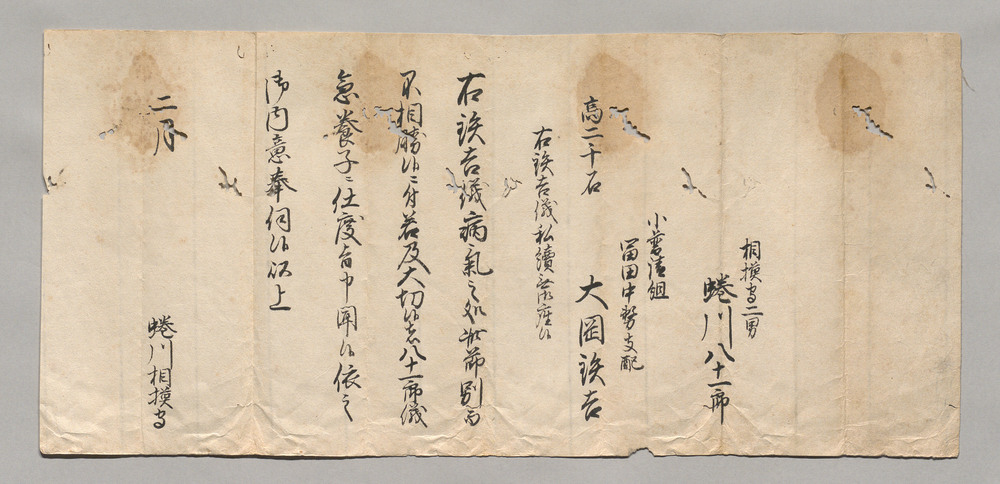 相摸守二男
蜷川八十一郎
小普請組
冨田中務支配
高二十石　大岡鉄吉
右鉄吉儀私續無御座候
右鉄吉儀病氣之処此節別而
不相勝候ニ付若及大切候者八十一郎儀
急養子ニ仕度旨申聞候依之
御内意奉伺候以上
二月
蜷川相摸守